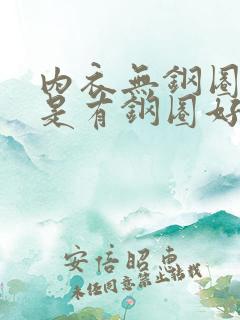 内衣無鋼圈
是有鋼圈好
安倍昭惠
未任同意禁止转载